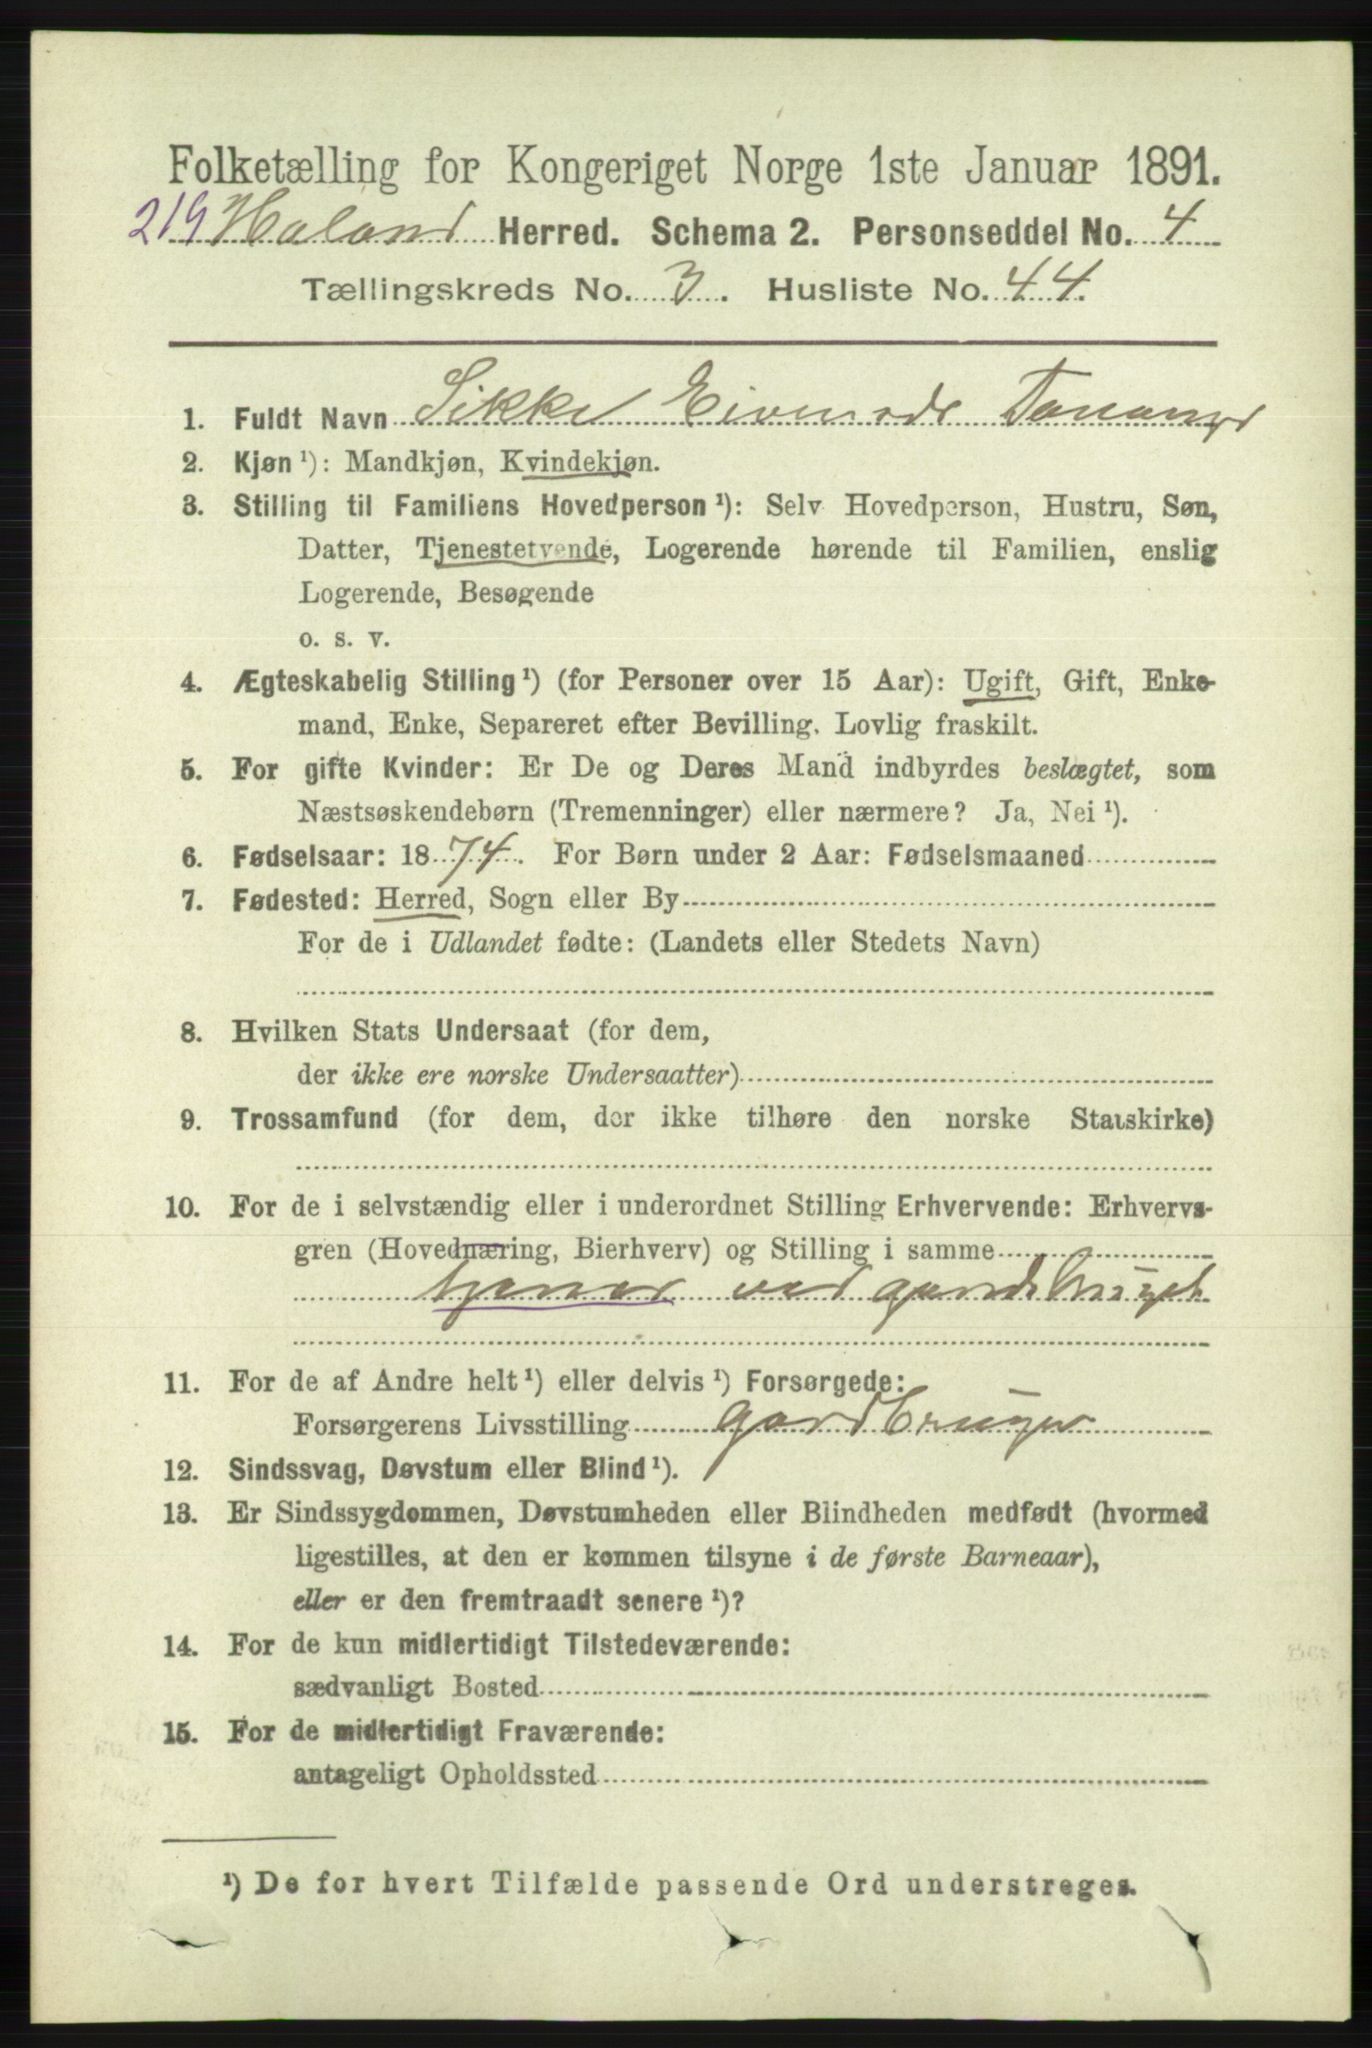 Folketælling for Kongeriget Norge 1ste Januar 1891.
219 Haland Herred. Schema 2. Personseddel No. 4
Tællingskreds No. 3. Husliste No. 44.
1. Fuldt Navn Sikke Eivendsd. Tananger
2. Kjøn ¹): Mandkjøn, Kvindekjøn.
3. Stilling til Familiens Hovedperson ¹): Selv Hovedperson, Hustru, Søn,
Datter, Tjenestetyende, Logerende hørende til Familien, enslig
Logerende, Besøgende
o. s. v.
4. Ægteskabelig Stilling ¹) (for Personer over 15 Aar): Ugift, Gift, Enke-
mand, Enke, Separeret efter Bevilling. Lovlig fraskilt.
5. For gifte Kvinder: Er De og Deres Mand indbyrdes beslægtet, som
Næstsøskendebørn (Tremenninger) eller nærmere? Ja, Nei ¹).
6. Fødselsaar: 1874. For Børn under 2 Aar: Fødselsmaaned
7. Fødested: Herred, Sogn eller By
For de i Udlandet fødte: (Landets eller Stedets Navn)
8. Hvilken Stats Undersaat (for dem,
der ikke ere norske Undersaatter)
9. Trossamfund (for dem, der ikke tilhøre den norske Statskirke)
10. For de i selvstændig eller i underordnet Stilling Erhvervende: Erhvervs-
gren (Hovednæring, Bierhverv) og Stilling i samme
tjener ved gardsbruget
11. For de af Andre helt ¹) eller delvis ¹) Forsørgede:
Forsørgerens Livsstilling gardbruger
12. Sindssvag, Døvstum eller Blind ¹).
13. Er Sindssygdommen, Døvstumheden eller Blindheden medfødt (hvormed
ligestilles, at den er kommen tilsyne i de første Barneaar),
eller er den fremtraadt senere ¹)?
14. For de kun midlertidigt Tilstedeværende:
sædvanligt Bosted
15. For de midlertidigt Fraværende:
antageligt Opholdssted
¹) De for hvert Tilfælde passende Ord understreges.